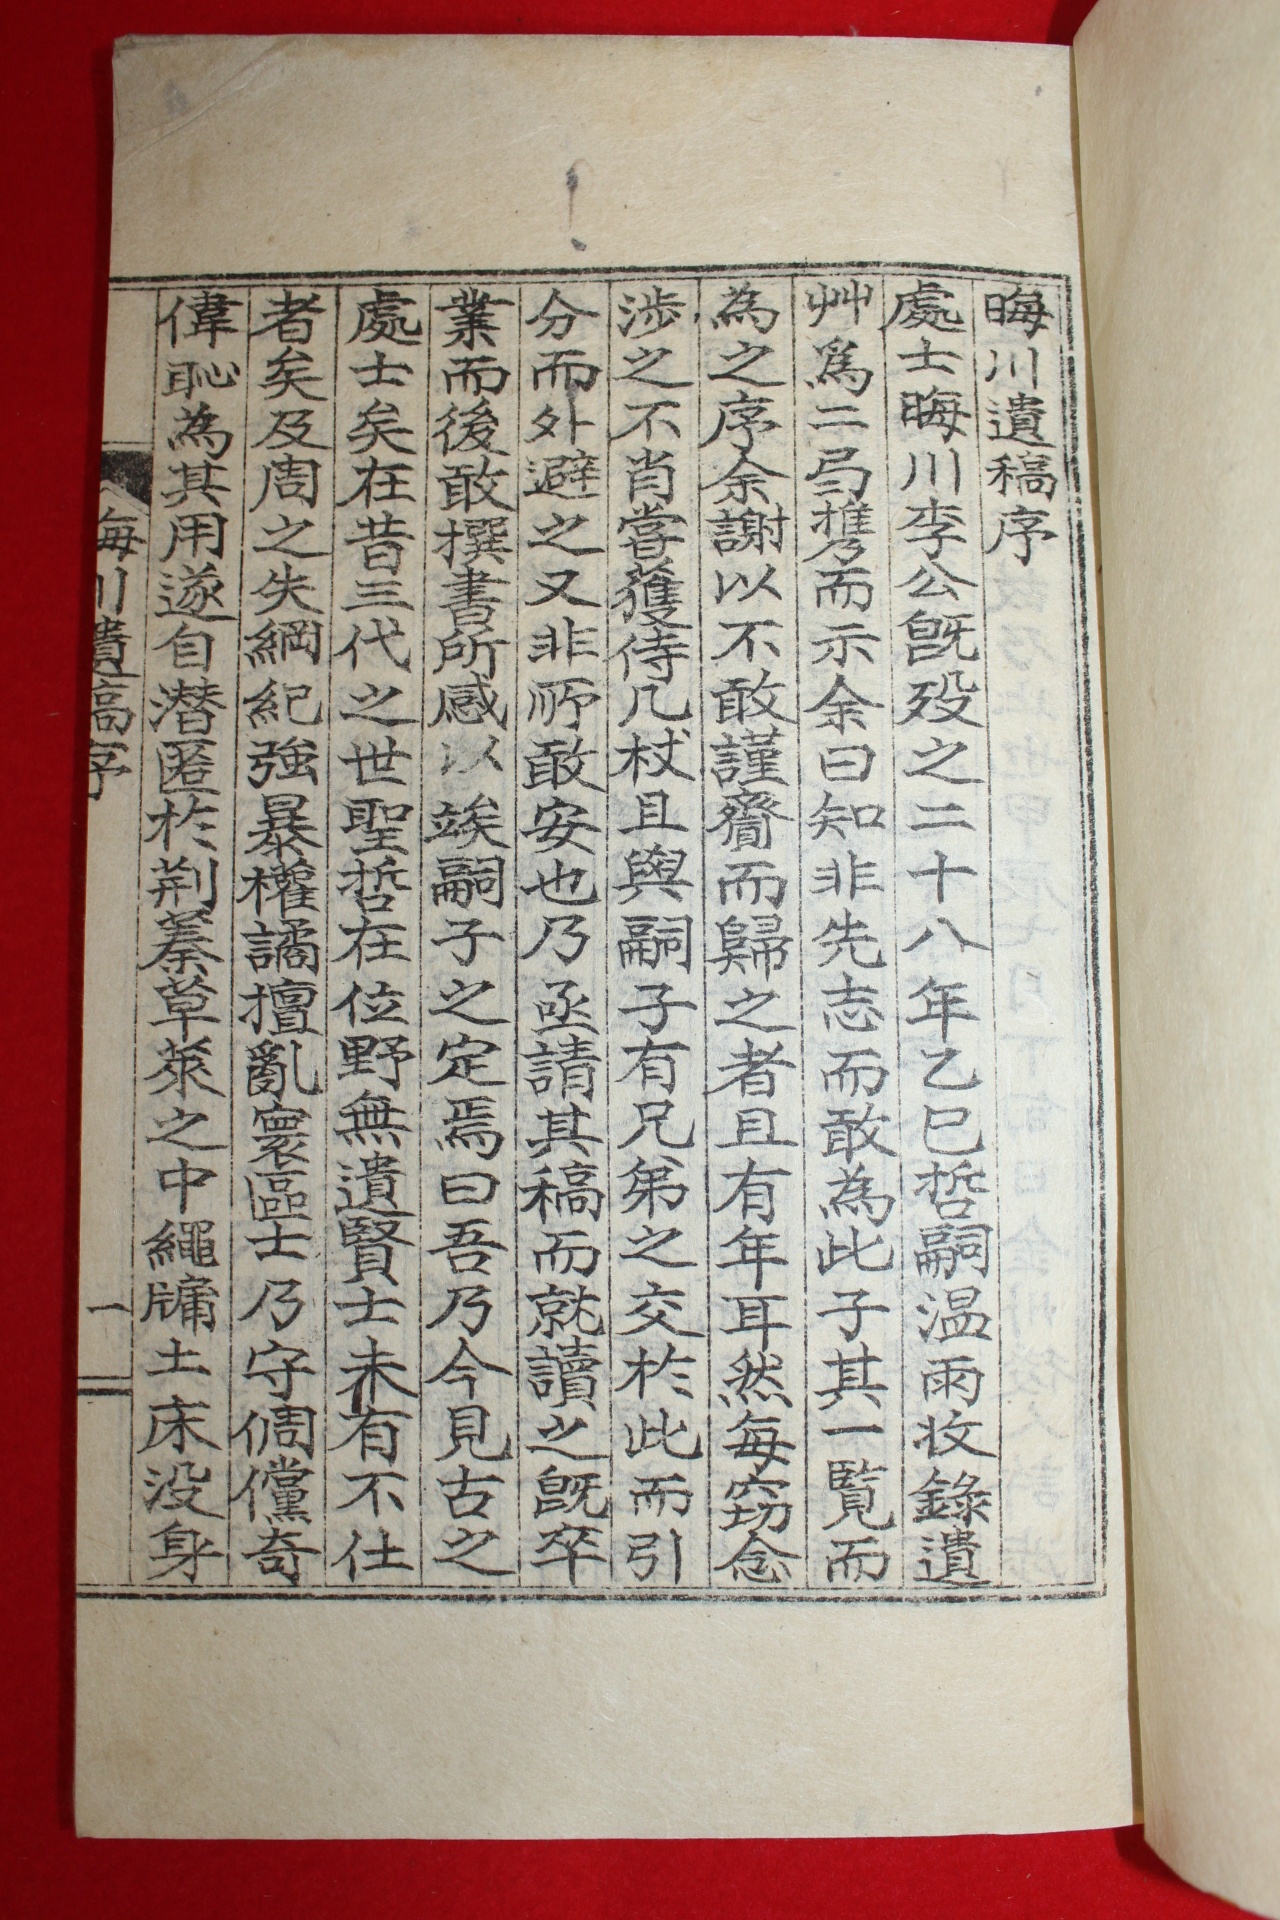 晦川遺稿序
處士晦川李公旣歿之二十八年乙巳哲嗣温雨收錄遺
艸爲二弓携而示余曰知非先志而敢為此子其一覧而
為之序余謝以不敢謹齎而歸之者且有年耳然每竊念
涉之不肖嘗獲侍几杖且與嗣子有兄弟之交於此而引
分而外避之又非所敢安也乃亟請其稿而就讀之旣卒
業而後敢撰書所感以竢嗣子之定焉曰吾乃今見古之
處士矣在昔三代之世聖哲在位野無遺賢士未有不仕
者矣及周之失綱紀強暴權譎擅亂寰區士乃守倜儻奇
偉恥為其用遂自潜匿於荆蓁草萊之中繩牖土床没身
晦川遺稿序
一